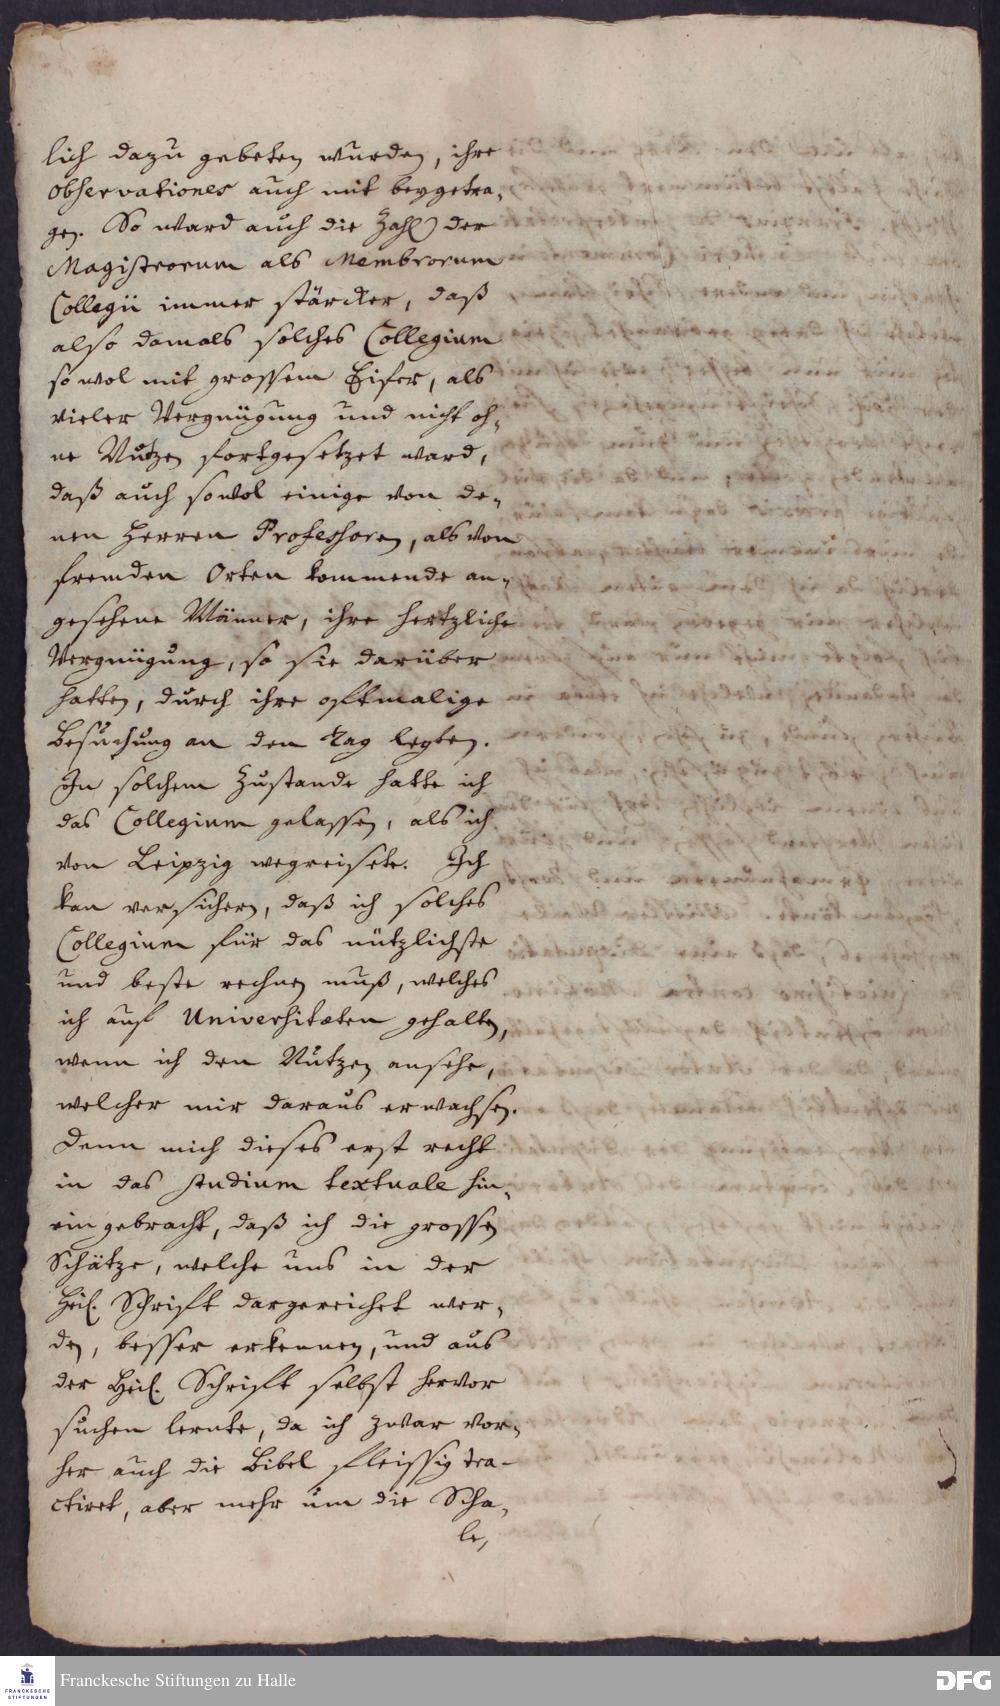 lich dazu gebeten wurden, ihre
observationes auch mit beygetra-
gen. So ward auch die Zahl der
Magistrorum als Membrorum
Collegii immer stärcker, daß
also damals solches Collegium
so wol mit grossem Eifer, als
vieler Vergnügung und nicht oh-
ne Nutzen fortgesetzet ward,
daß auch sowol einige von de-
nen Herren Professoren, als von
fremden Orten kommende an-
gesehene Männer, ihre hertzliche
Vergnügung, so sie darüber
hatten, durch ihre oftmalige
Besuchung an den Tag legten.
In solchem Zustande hatte ich
das Collegium gelassen, als ich
von Leipzig wegreisete. Ich
kan versichern, daß ich solches
Collegium für das nützlichste
und beste rechnen muß, welches
ich auf Universitæten gehalten,
wenn ich den Nutzen ansehe,
welcher mir daraus erwachsen.
Denn mich dieses erst recht
in das studium textuale hin-
ein gebracht, daß ich die grossen
Schätze, welche uns in der
Heil. Schrift dargereichet wer-
den, besser erkennen, und aus
der Heil. Schrift selbst hervor
suchen lernte, da ich zwar vor-
her auch die Bibel fleissig tra-
ctiret, aber mehr um die Scha-
le,
FRANCKESCHE
STIFTUNGEN
Franckesche Stiftungen zu Halle
DFG